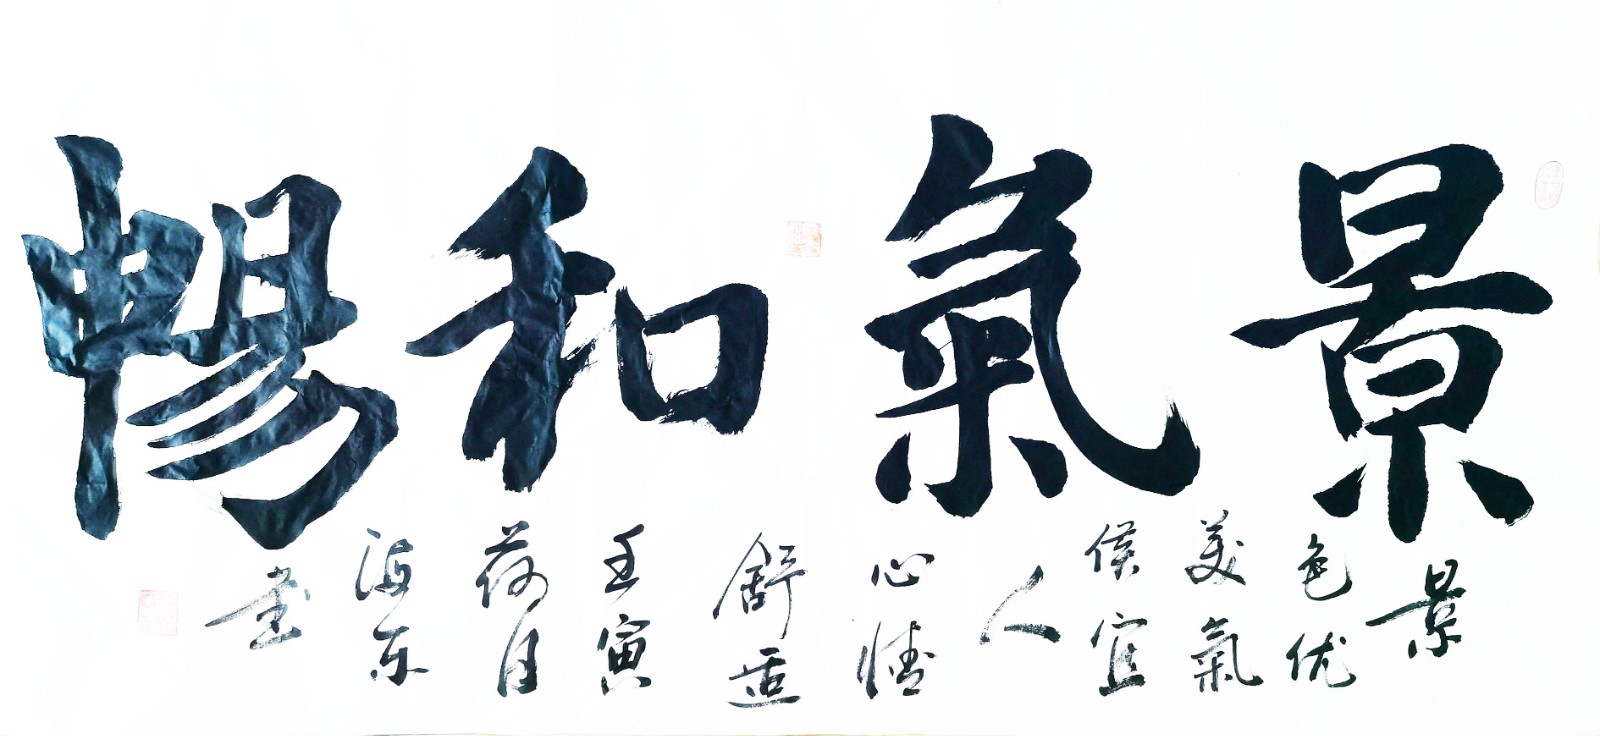 景氣和暢
景
色优
美氣
侯宜
人
心情
舒适
壬寅
荷月
海东
書